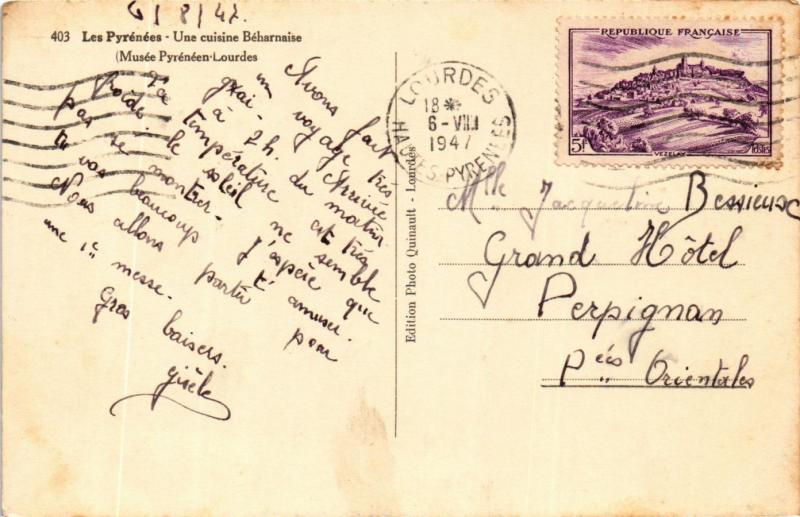 6/8/47.
403 Les Pyrénées - Une cuisine Béharnaise
(Musée Pyrénéen-Lourdes
Avons fait
un voyage très
gai. Arrivée
à 2h. du matin
La température est très
froide. le soleil ne semble
pas se montrer. J'espère que
tu vas beaucoup t'amuser.
Nous allons partir pour
une 1e messe.
Gros baisers.
Gisèle
Edition Photo Quinault - Lourdes
LOURDES
18*
6-VIII
1947
HAUTES PYRENEES
REPUBLIQUE FRANÇAISE
5F
VEZELAY
POSTES
Mlle Jacqueline Bessieux
Grand Hôtel
Perpignan
Pées Orientales